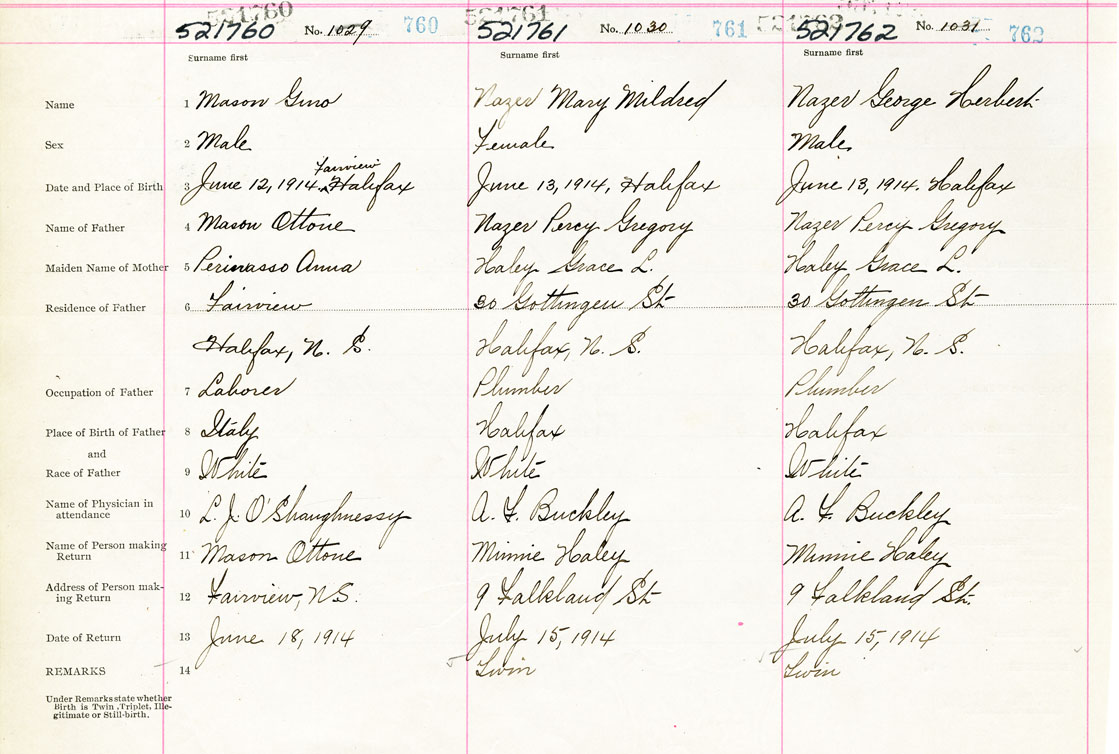 521760 521761 521762
521760 No. 1029 760 521761 No. 1030 761 521762 No. 1031 762
Surname first Surname first Surname first
Name 1 Mason Gino Nazer Mary Mildred Nazer George Herbert
Sex 2 Male Female Male
Fairview
Date and Place of Birth 3 June 12, 1914, Halifax June 13, 1914, Halifax June 13, 1914. Halifax
Name of Father 4 Mason Ottone Nazer Percy Gregory Nazer Percy Gregory
Maiden Name of Mother 5 Perinasso Anna Haley Grace L. Haley Grace L.
Residence of Father 6 Fairview 30 Gottingen St 30 Gottingen St
Halifax, N. S. Halifax, N. S. Halifax, N. S.
Occupation of Father 7 Laborer Plumber Plumber
Place of Birth of Father 8 Italy Halifax Halifax
and
Race of Father 9 White White White
Name of Physician in
attendance 10 L. J. O'Shaughnessy A. F. Buckley A. F. Buckley
Name of Person making
Return 11 Mason Ottone Minnie Haley Minnie Haley
Address of Person mak-
ing Return 12 Fairview, N.S. 9 Falkland St. 9 Falkland St.
Date of Return 13 June 18, 1914 July 15, 1914 July 15, 1914
REMARKS 14 Twin Twin
Under Remarks state whether
Birth is Twin, Triplet, Ille-
gitimate or Still-birth.